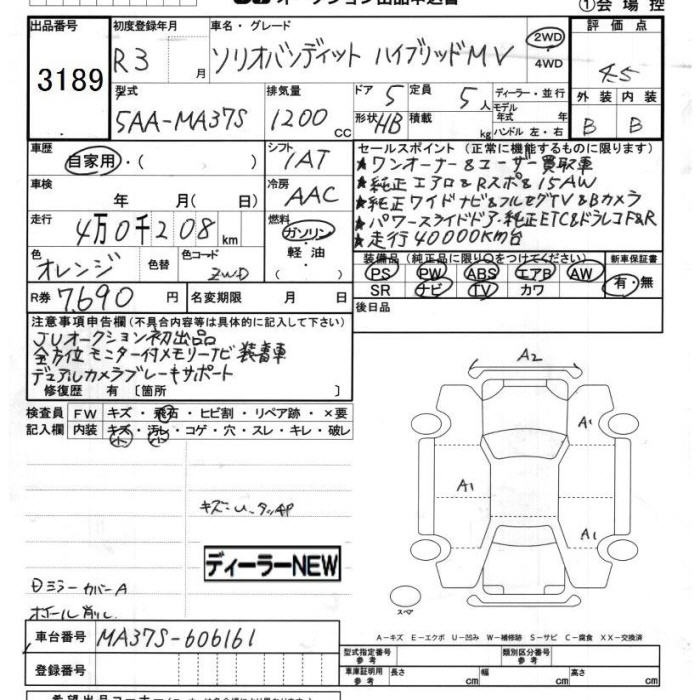 オークション出品申込書
①会場控
出品番号
3189
初度登録年月
R3 月
車名・グレード
ソリオバンディット ハイブリッドMV
2WD
4WD
評価点
4.5
外装 内装
B B
型式
5AA-MA37S
排気量
1200 CC
ドア
5
定員
5 人
形状
HB
積載
kg
ディーラー・並行
モデル年式 年
ハンドル 左・右
車歴
自家用・( )
シフト
IAT
車検
年 月( 日)
冷房
AAC
走行
4万0千208 km
燃料
ガソリン
軽油
( )
色
オレンジ
色替
色コード
ZWD
R券
7,690 円
名変期限 月 日
セールスポイント (正常に機能するものに限ります)
★ワンオーナー&ユーザー買取車
★純正エアロ&Rスポ&15AW
★純正ワイドナビ&フルセグTV&Bカメラ
★パワースライドドア・純正ETC&ドラレコF&R
★走行40000KM台
装備品 (純正品に限り○をつけてください)
PS PW ABS エアB AW
SR ナビ TV カワ
新車保証書
有・無
後日品
注意事項申告欄(不具合内容等は具体的に記入して下さい)
JUオークション初出品
全方位モニター付メモリーナビ装着車
デュアルカメラブレーキサポート
修復歴 有 〔箇所 〕
検査員記入欄
FW キズ・飛石・ヒビ割・リペア跡・×要
内装 キズ・汚レ・コゲ・穴・スレ・キレ・破レ
小 小
キズ・U、タッチP
ディーラーNEW
Dミラー カバーA
ホイール削レ
A2
A1
A1
A1
スペア
A-キズ E-エクボ U-凹み W-補修跡 S-サビ C-腐食 XX-交換済
車台番号
MA37S-606161
登録番号
型式指定番号
参考
類別区分番号
参考
車庫証明用
参考
長さ cm 幅 cm 高さ cm